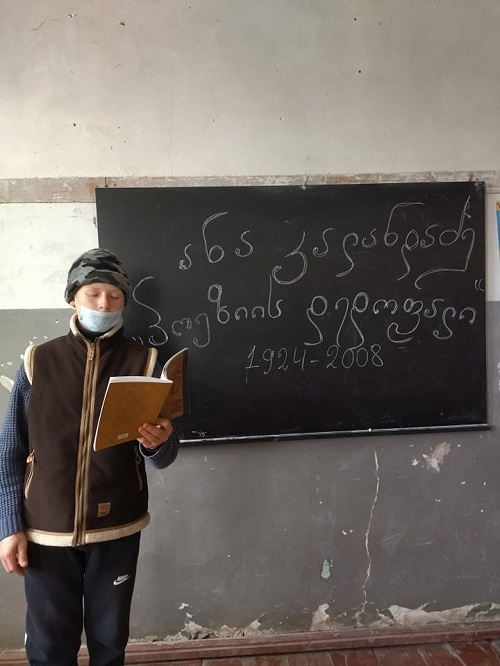 ანა კალანდაძე
„პოეზიის დედოფალი“
1924-2008